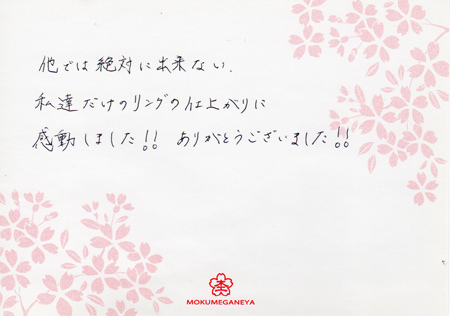 他では絶対に出来ない.
私達だけのリングの仕上がりに
感動しました!! ありがとうございました!!
MOKUMEGANEYA